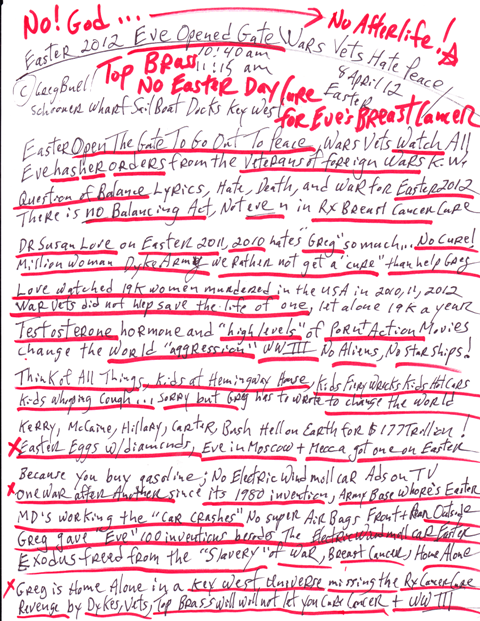 No! God ... → No Afterlife!
Easter 2012 Eve Opened Gate Wars Vets Hate Peace,
10:40 am
Top Brass 11:15 am 8 April 12
© Greg Buell No Easter Day Cure Easter
Schooner Wharf Sail Boat Docks Key West for Eve's Breast Cancer
Easter Open The Gate To Go Out To Peace, Wars Vets Watch All
Eve has her orders from the Veterans of foreign Wars K.W.
Question of Balance Lyrics, Hate, Death, and war for Easter 2012
There is no Balancing Act, Not even in Rx Breast Cancer Cure
DR Susan Love on Easter 2011, 2010 hates "Greg" so much... No Cure!
Million Woman Dyke Army we Rather not get a "cure" than help Greg
Love watched 19K women murdered in the USA in 2010, 11, 2012
War Vets did not help save the life of one, let alone 19K a year
Testosterone hormone and "high levels" of Porn + Action Movies
change the world "aggression" WW III No Aliens, No Star Ships!
Think of All Things, Kids at Hemingway House, Kids Fiery Wrecks Kids Hot Cars
Kids whooping Cough... Sorry but Greg has to wrote to change the world
Kerry, McCaine, Hillary, Carter, Bush Hell on Earth for $177 Trollion!
x Easter Eggs w/diamonds, Eve in Moscow + Mecca got one on Easter
Because you buy gasoline; No Electric Windmoll car Ads on TV
x One war after Another since its 1980 invention, Army Base Whore's Easter
MD's working the "Car crashes" No super Air Bags Front + Rear Outside
Greg gave "Eve" 100 inventions besides The Electric windmoll car Easter
Exodus freed from the "Slavery" of War, Breast Cancer, Home Alone
x Greg is Home Alone in a Key West Universe missing the Rx Cancer Cure
Revenge by Dykes, Vets, Top Brass will will not let you Cure Cancer + WW III